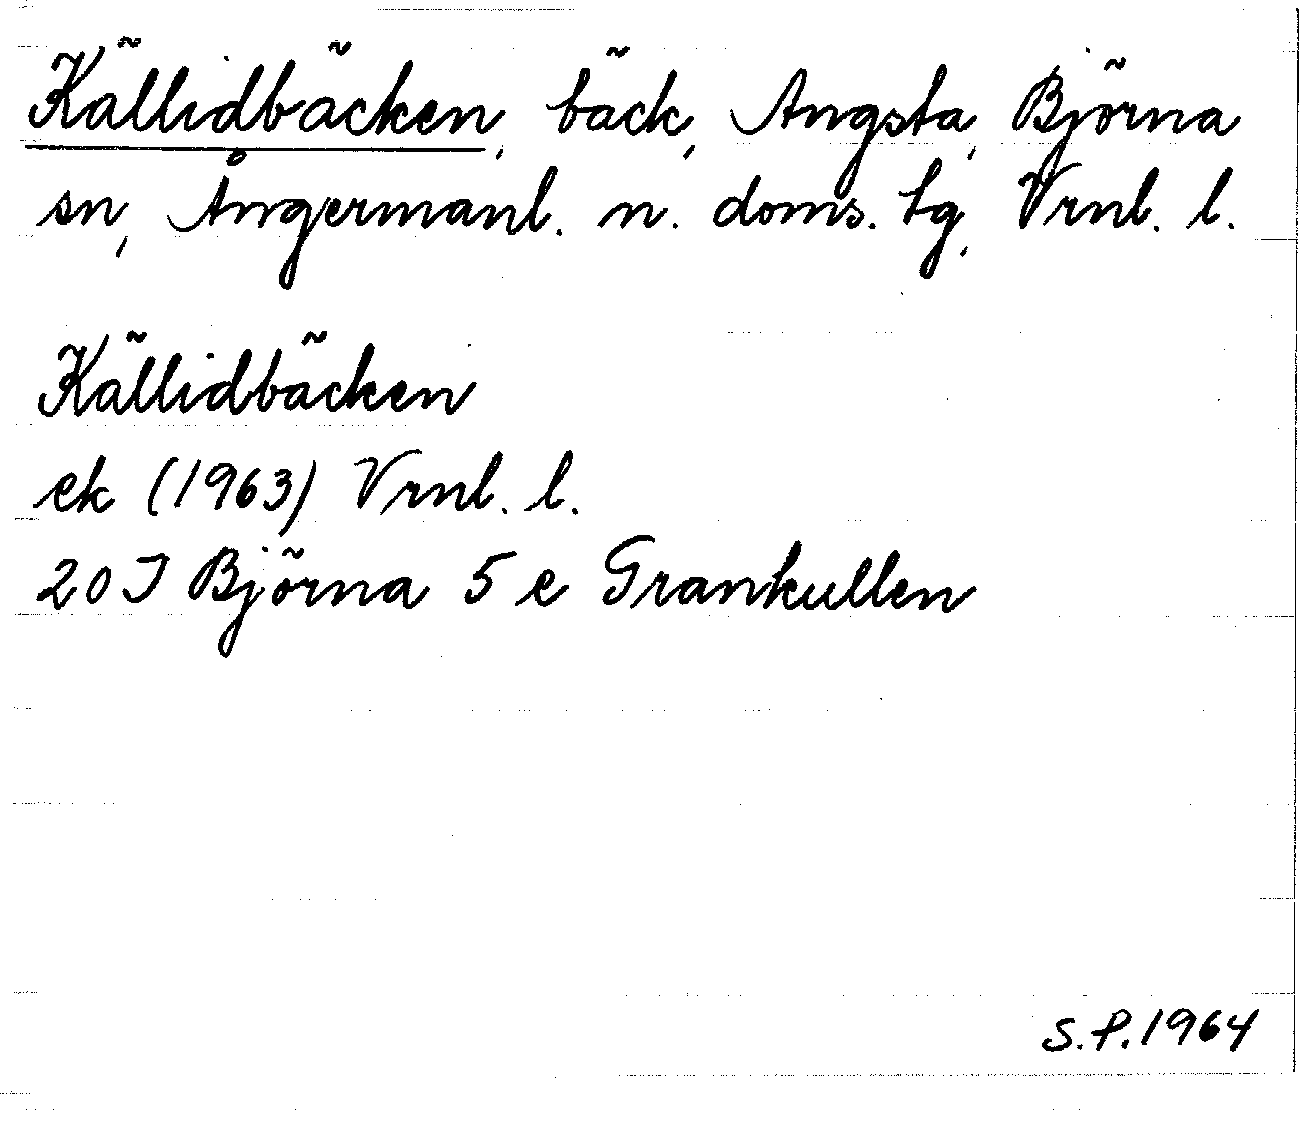 Källidbäcken, bäck, Angsta, Björna
sn, Ångermanl. n. doms. tg, Vrnl. l.
Källidbäcken
ek (1963) Vrnl. l.
20 I Björna 5 e Grankullen
S.P. 1964